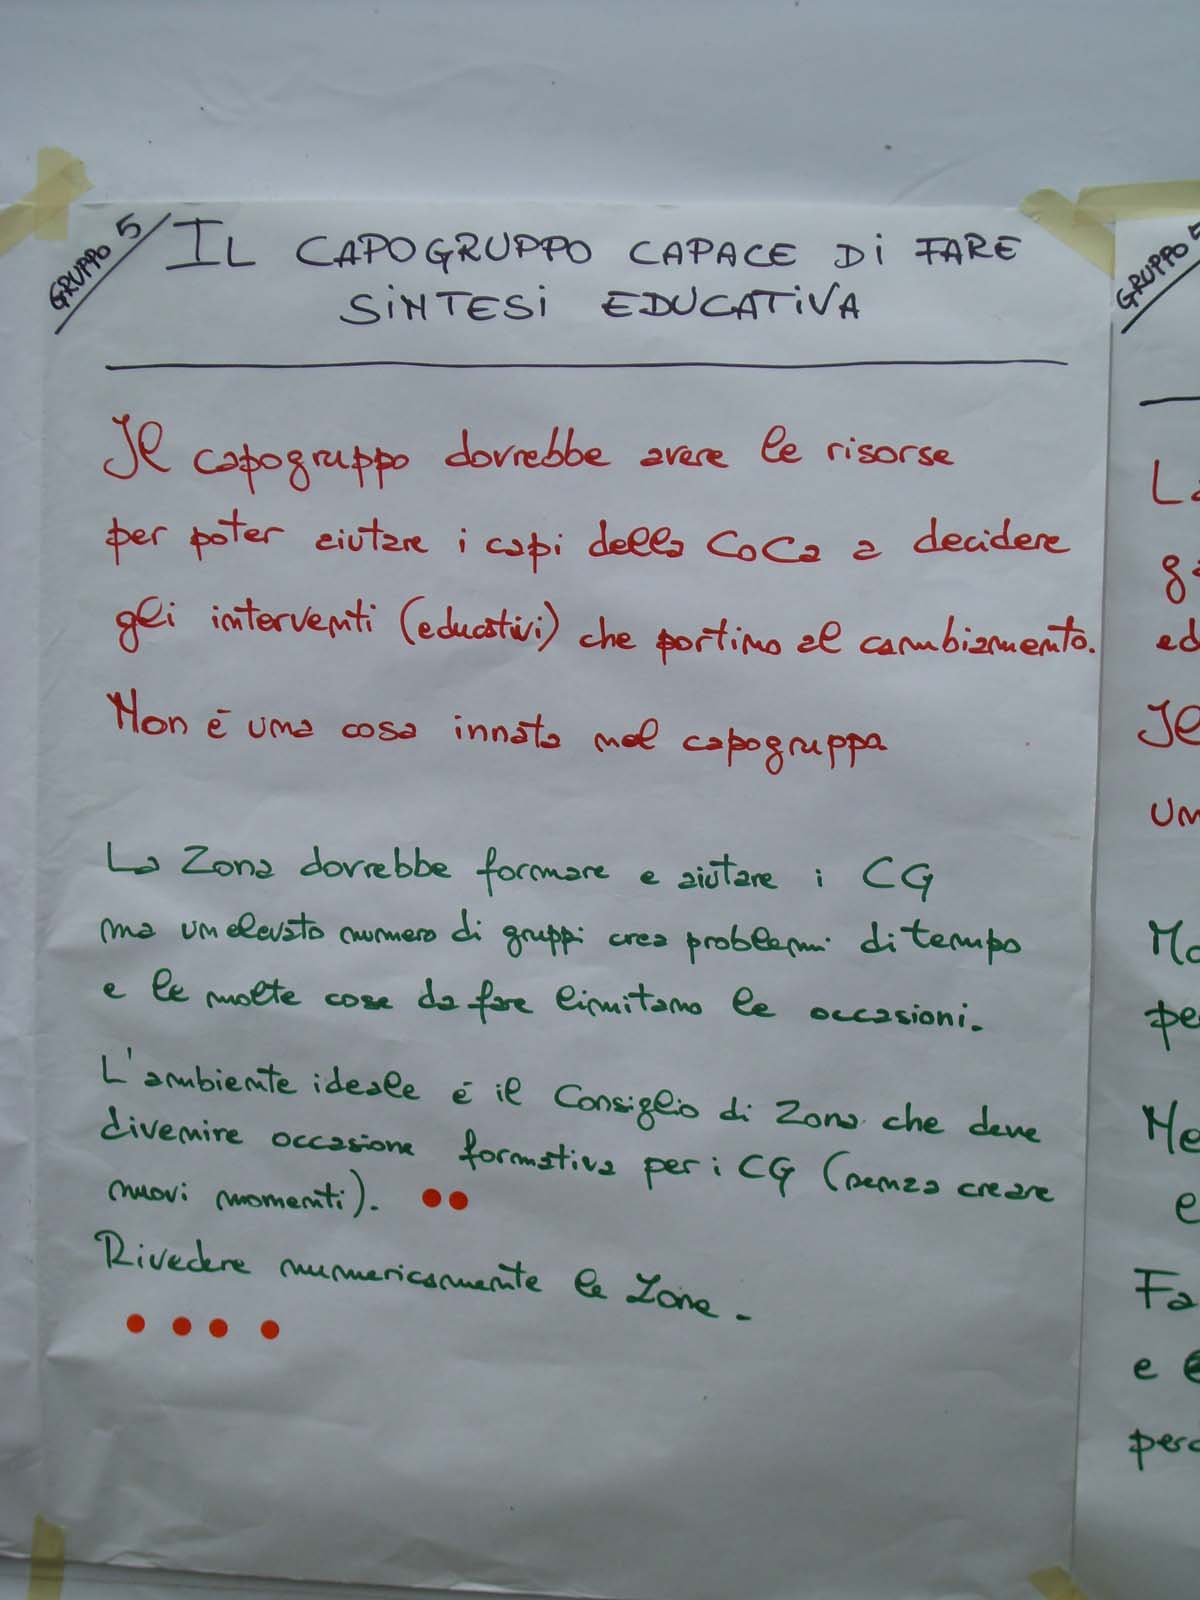 GRUPPO 5
IL CAPOGRUPPO CAPACE DI FARE
SINTESI EDUCATIVA
Il capogruppo dovrebbe avere le risorse
per poter aiutare i capi della CoCa a decidere
gli interventi (educativi) che portino al cambiamento.
Non è una cosa innata nel capogruppo
La Zona dovrebbe formare e aiutare i CG
ma un elevato numero di gruppi crea problemi di tempo
e le molte cose da fare limitano le occasioni.
L'ambiente ideale è il Consiglio di Zona che deve
divenire occasione formativa per i CG (senza creare
nuovi momenti).
Rivedere numericamente le Zone.
GRUPPO 5
La
ed
Il
un
pe
e
Fa
e